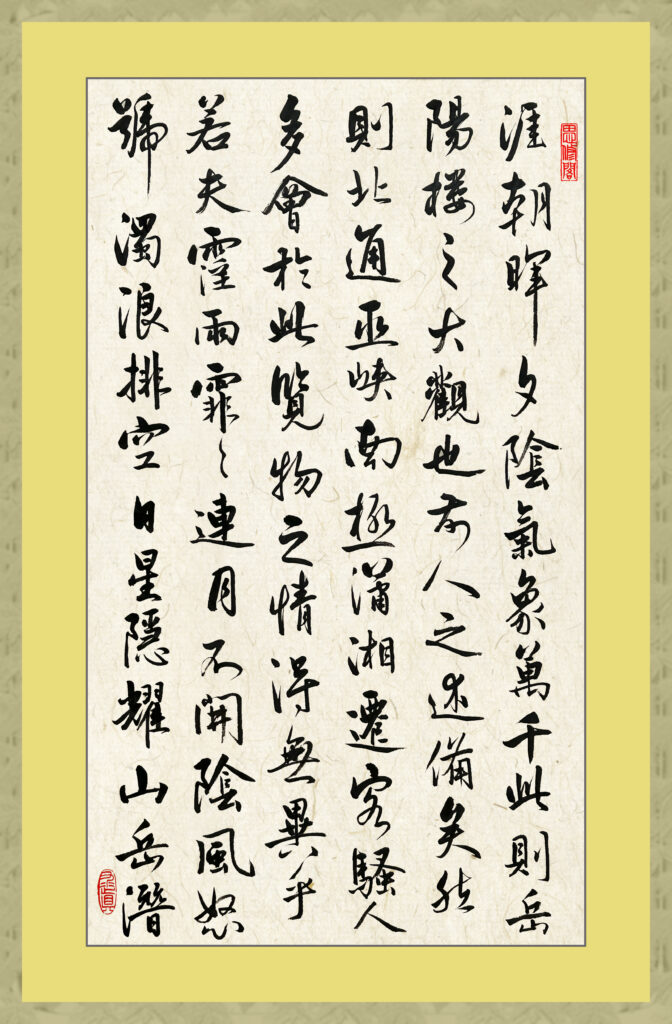 涯朝暉夕陰氣象萬千此則岳
陽樓之大觀也前人之述備矣然
則北通巫峽南極瀟湘遷客騷人
多會於此覽物之情得無異乎
若夫霪雨霏〻連月不開陰風怒
號濁浪排空日星隱耀山岳潛